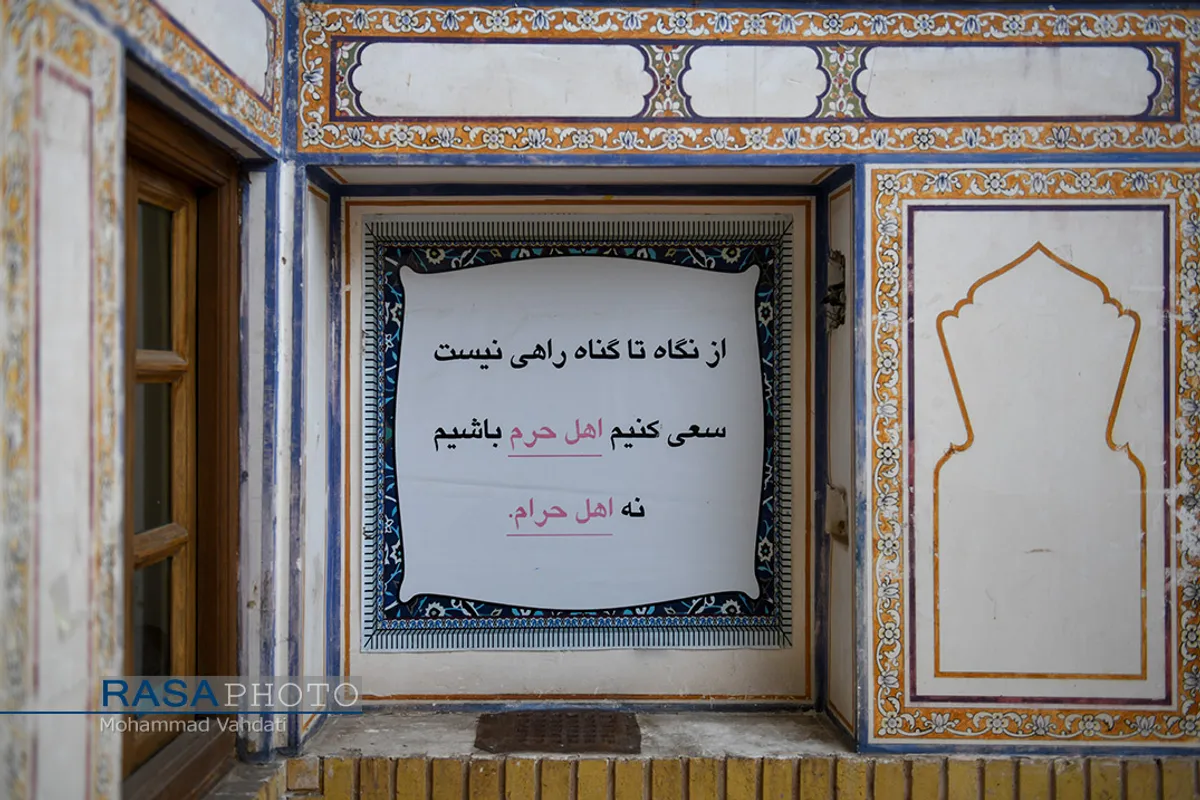 از نگاه تا گناه راهی نیست
سعی کنیم اهل حرم باشیم
نه اهل حرام.
RASAPHOTO
Mohammad Vahdati